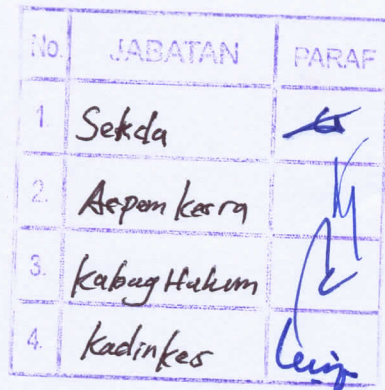 No. JABATAN PARAF
1. Sekda
2. Aspem kesra
3. Kabag Hukum
4. Kadinkes